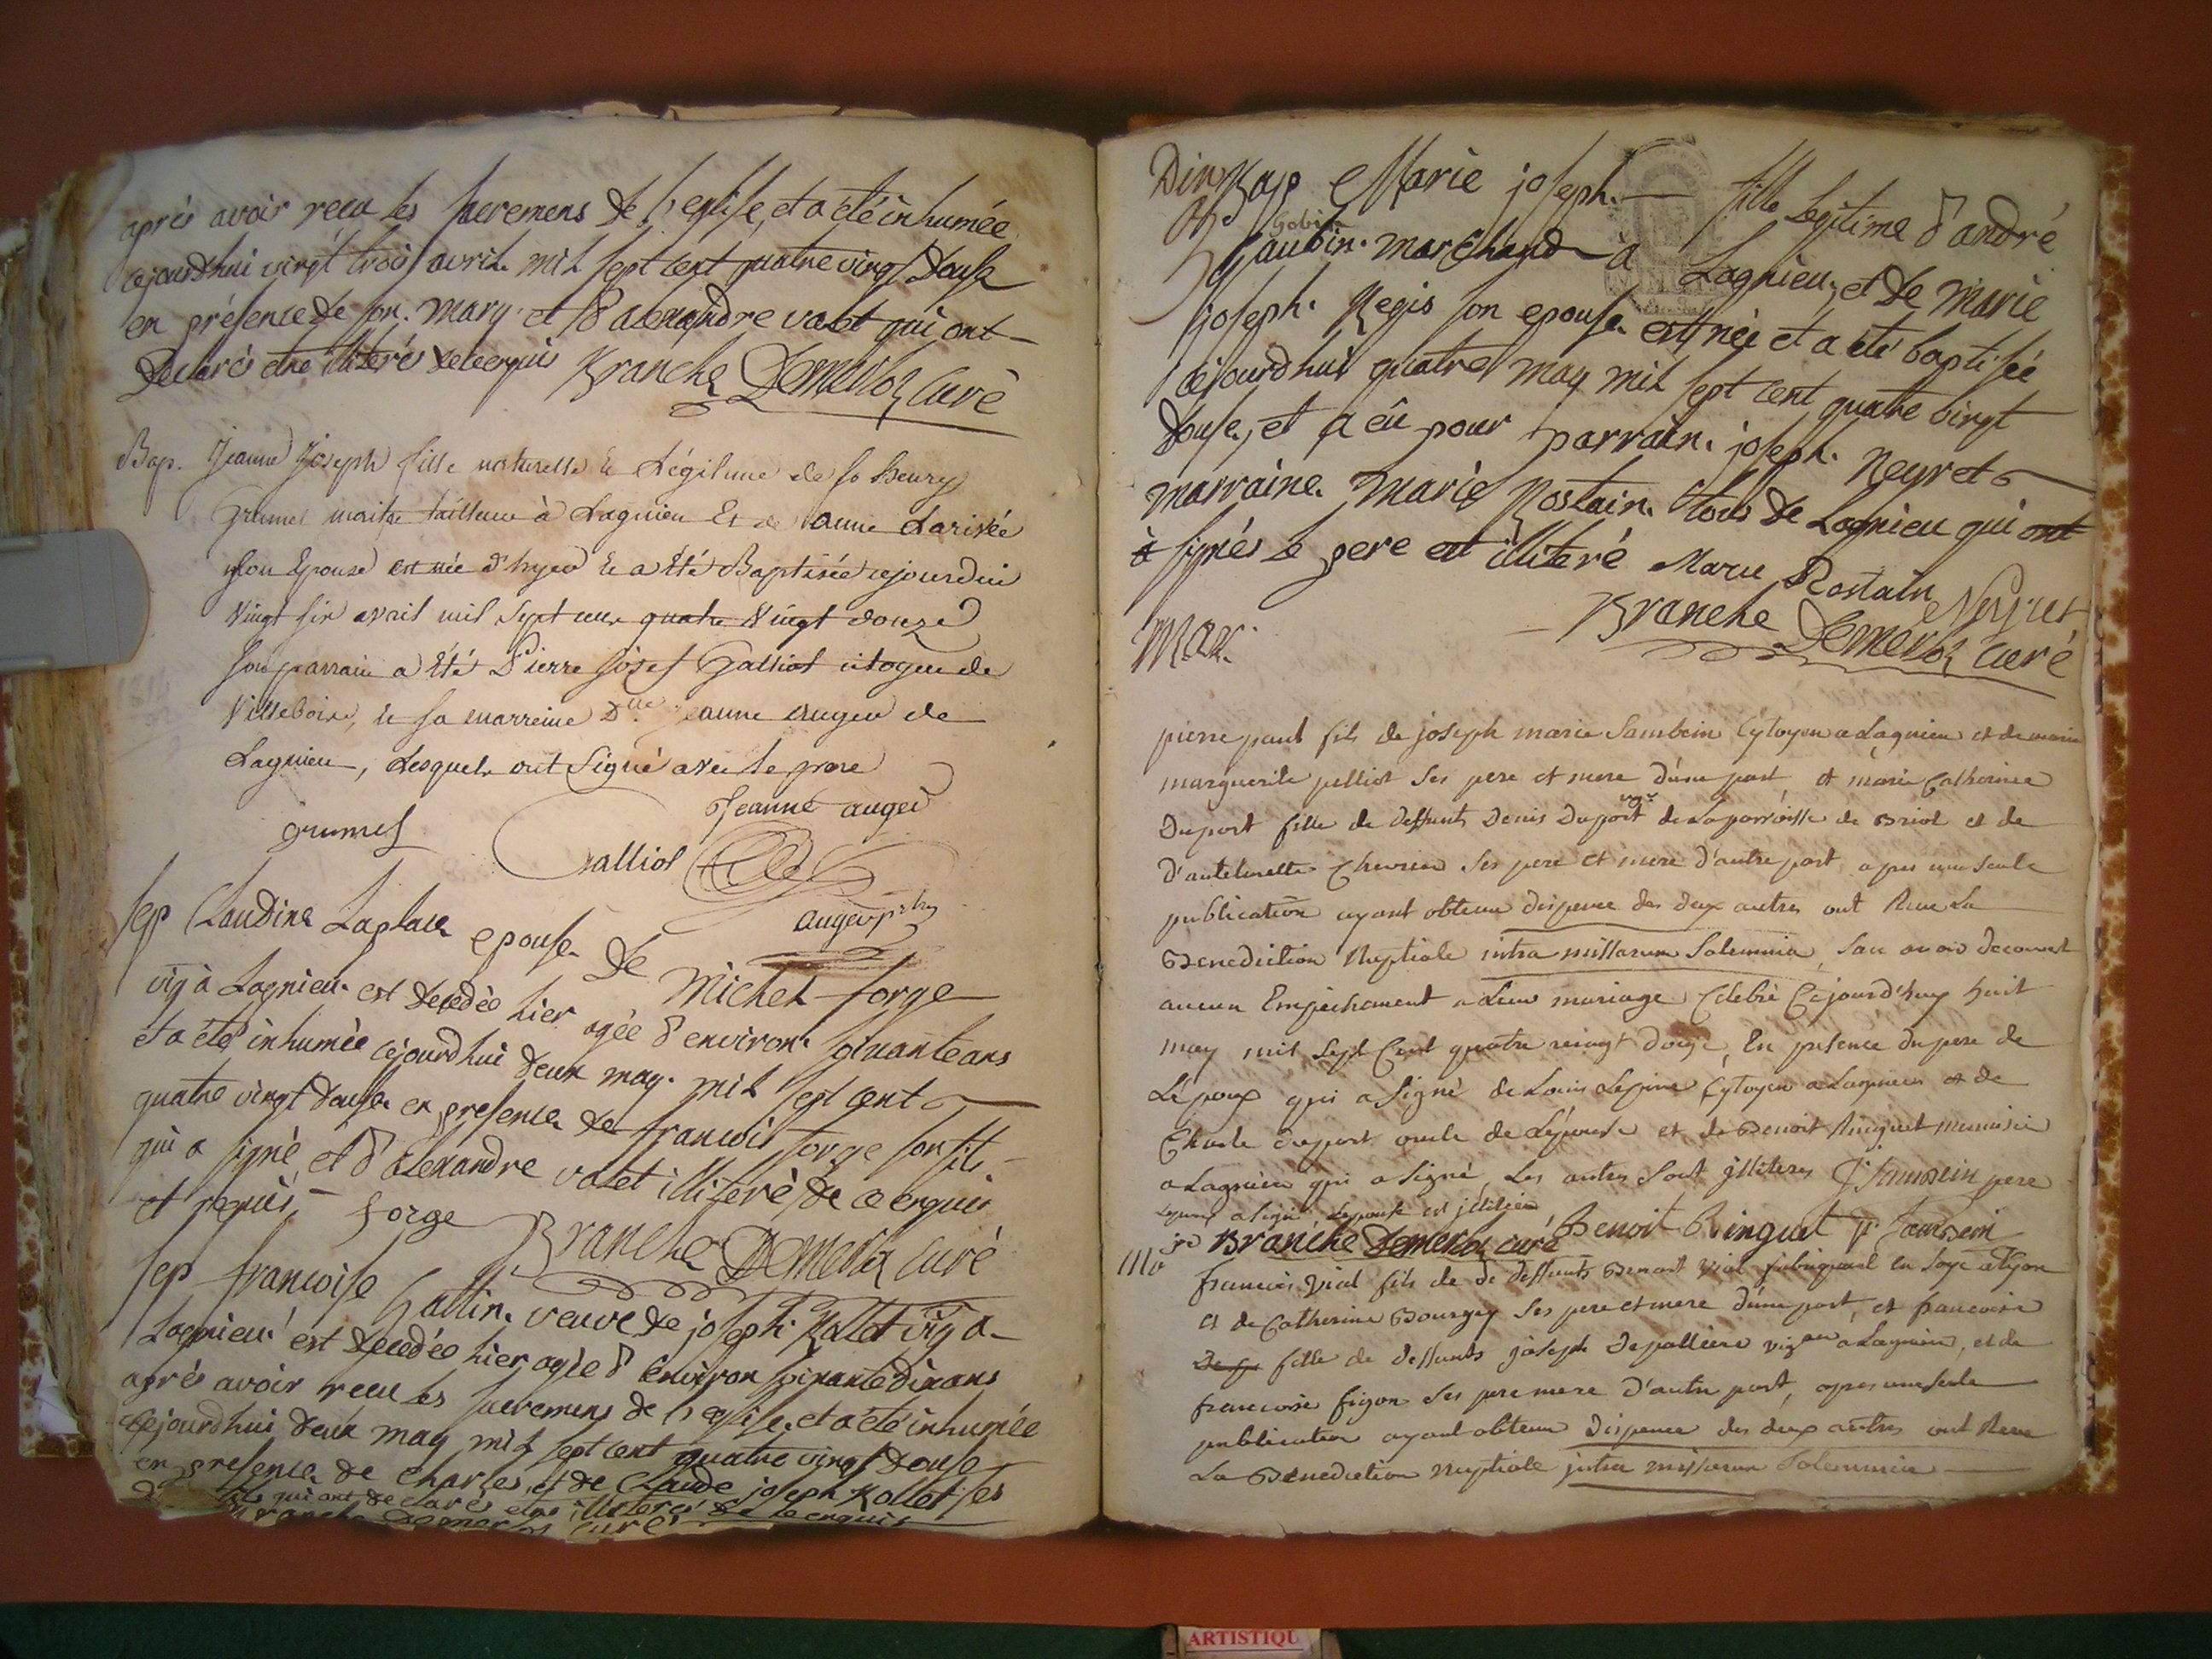 après avoir reçu les sacremens de l'eglise, et a été inhumée
cejourdhui vingt trois avril mil sept cent quatre vingt douse
en présence de son mary et d'alexandre valet qui ont
declarés etre illiterés de ce enquis Branche Demerloz Curé
Bap. Jeanne Joseph fille naturelle & Légitime de sr heury
Grumel maitre tailleur à Lagnieu Et de anne Larivée
son Epouse est née d'hyer & a Eté Baptisée cejourdui
vingt six avril mil sept cent quatre vingt douze
son parrain a Eté Pierre Josef Galliot citoyen de
Villeboise, & sa marreine Dlle jeanne auger de
Lagnieu, Lesquels ont Signé avec le pere
Jeanne auger
grumel
Galliot
auger
Sep Claudine Laplace epouse de Michel forge
vig à Lagnieu est decedée hier agée d'environ soixante ans
et a été inhumée cejourdhui deux may mil sept cent
quatre vingt douse en presence de francois forge son fils
qui a signé, et d'alexandre valet illiteré de ce enquis
et requis, forge Branche Demerloz Curé
Sep francoise Gallin veuve de joseph Rollet vig a
Lagnieu est decedée hier agée d'environ soixante dix ans
après avoir reçu les sacremens de l'eglise et a été inhumée
cejourdhui deux may mil sept cent quatre vingt douse
en presence de charles et de Claude joseph Rollet ses
fils qui ont declarés etre illiterés de ce enquis
Branche Demerloz curé
Bap Marie joseph fille Legitime d'andré
Gobin
Gaubin marchand à Lagnieu, et de Marie
joseph Regis son epouse est née et a été baptisée
cejourdhui quatre may mil sept cent quatre vingt
douse, et a eu pour parrain joseph Neyret
marraine Marie Rostain tous de Lagnieu qui ont
signés le pere est illiteré Marie Rostain Neyret
Branche Demerloz Curé
Mar.
pierre paul fils de joseph marie Sambein Cytoyen a Lagnieu et de marie
marguerite pelliot ses pere et mere d'une part et marie Catherine
Duport fille de deffunts Denis Duport vigr de la parroisse de Briod et de
Chevrier ses pere et mere d'autre part, apres une seule
publication ayant obtenu dispense des deux autres ont Recu La
Benediction Nuptiale intra missarum Solemnia, sans avoir decouvert
aucun Empechement a Leur mariage Celebré Cejourd'huy huit
may mil Sept Cent quatre vingt douze, En presence du pere de
L'époux qui a Signé de Louis Lepine Cytoyen a Lagnieu et de
Charle duport oncle de Lépouse et de Benoit Ringuet menuisier
a Lagnieu qui a Signé, Les autres sont jlliteres J Sambein pere
Lepoux a signé Lepouse est
Branche Demerloz curé Benoit Ringuet p Sambein
francois Vial fils de deffunts Benoit Vial fabriquant en Soye a Lyon
et de Catherine Bourgey ses pere et mere d'une part, et francoise
fille de deffunts joseph Depalliere vigon a Lagnieu, et de
francoise figon ses pere mere d'autre part, apres une seule
publication ayant obtenu Dispense des deux autres ont Recu
La Benediction nuptiale jntra missarum Solemnia
ARTISTIQU